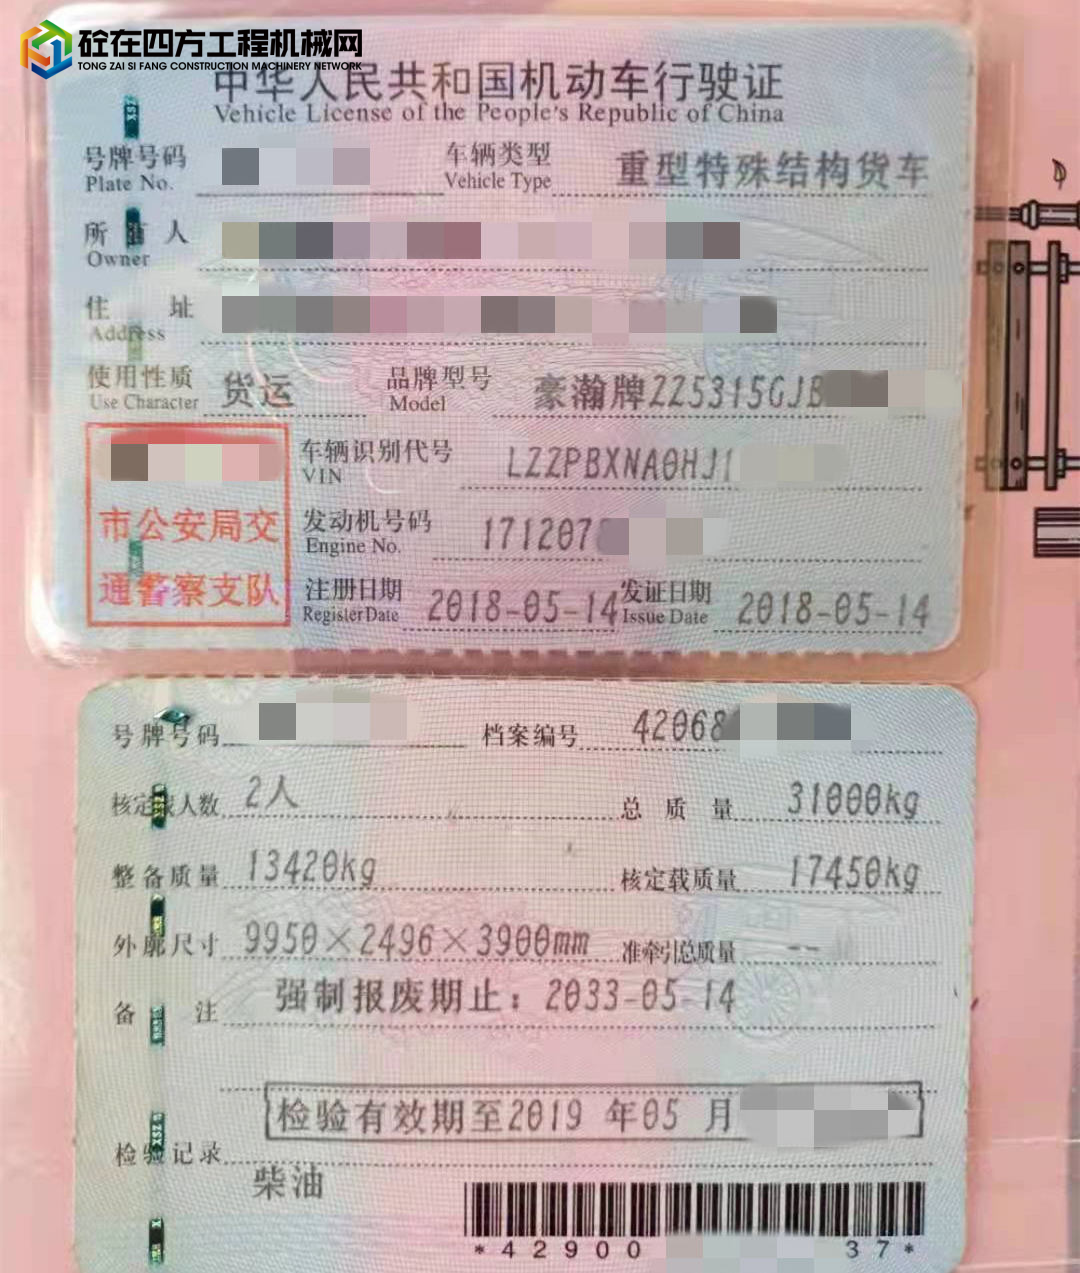 砼在四方工程机械网
TONG ZAI SI FANG CONSTRUCTION MACHINERY NETWORK
中华人民共和国机动车行驶证
Vehicle License of the People's Republic of China
号牌号码 车辆类型 重型特殊结构货车
Plate No. Vehicle Type
所有人
Owner
住 址
Address
使用性质 货运 品牌型号 豪瀚牌ZZ5315GJB
Use Character Model
车辆识别代号 LZZPBXNA0HJ1
VIN
市公安局交
通警察支队
发动机号码 171207
Engine No.
注册日期 2018-05-14 发证日期 2018-05-14
Register Date Issue Date
号牌号码 档案编号 42068
核定载人数 2人 总质量 31000kg
整备质量 13420kg 核定载质量 17450kg
外廓尺寸 9950×2496×3900mm 准牵引总质量 --
备 注 强制报废期止：2033-05-14
检验有效期至2019 年05 月
检验记录
柴油
*42900 37*